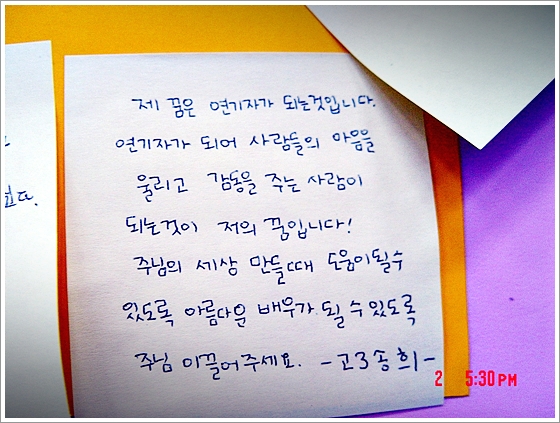 제 꿈은 연기자가 되는것입니다.
연기자가 되어 사람들의 마음을
울리고 감동을 주는 사람이
되는것이 저의 꿈입니다!
주님의 세상 만들때 도움이될수
있도록 아름다운 배우가 될 수 있도록
주님 이끌어주세요. -고3송희-
2 5:30PM